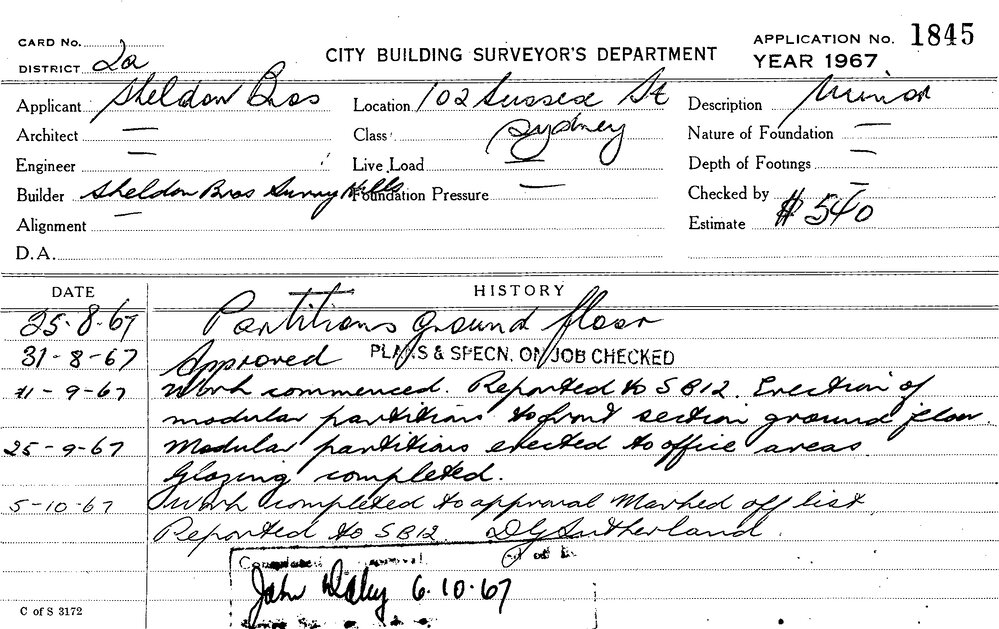 CARD No.
DISTRICT 2a
CITY BUILDING SURVEYOR'S DEPARTMENT
APPLICATION No. 1845
YEAR 1967
Applicant Sheldon Bros
Location 102 Sussex St
Sydney
Description Minor
Architect —
Class
Nature of Foundation —
Engineer —
Live Load —
Depth of Footings —
Builder Sheldon Bros Surry Hills
Foundation Pressure —
Checked by —
Alignment —
Estimate $ 540
D.A.
DATE HISTORY
25-8-67 Partitions ground floor
31-8-67 Approved PLANS & SPECN. ON JOB CHECKED
11-9-67 Work commenced. Reported to SB12. Erection of
modular partitions to front section ground floor.
25-9-67 Modular partitions erected to office areas.
Glazing completed.
5-10-67 Work completed to approval Marked off list.
Reported to SB12. DG Sutherland.
John Daley 6.10.67
C of S 3172